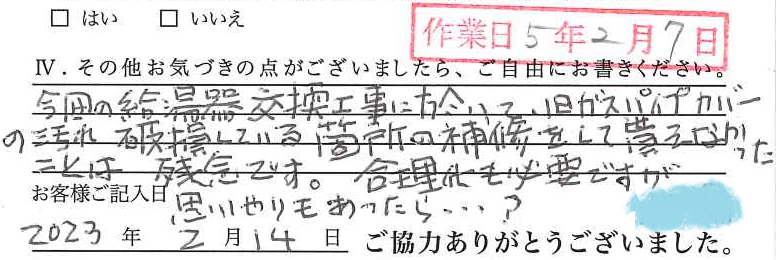 □ はい □ いいえ
作業日 5年2月7日
Ⅳ．その他お気づきの点がございましたら、ご自由にお書きください。
今回の給湯器交換工事に於いて、旧ガスパイプカバー
の汚れ 破損している箇所の補修をして貰えなかった
ことは 残念です。 合理化も必要ですが
お客様ご記入日 思いやりもあったら・・・？
2023 年 2 月 14 日 ご協力ありがとうございました。